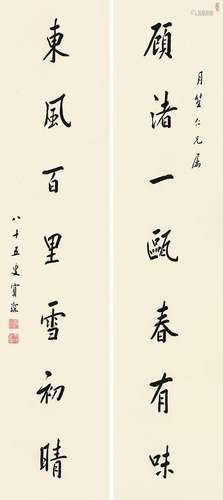 月笙仁兄属
顾渚一瓯春有味
東風百里雪初晴
八十五叟寶琛